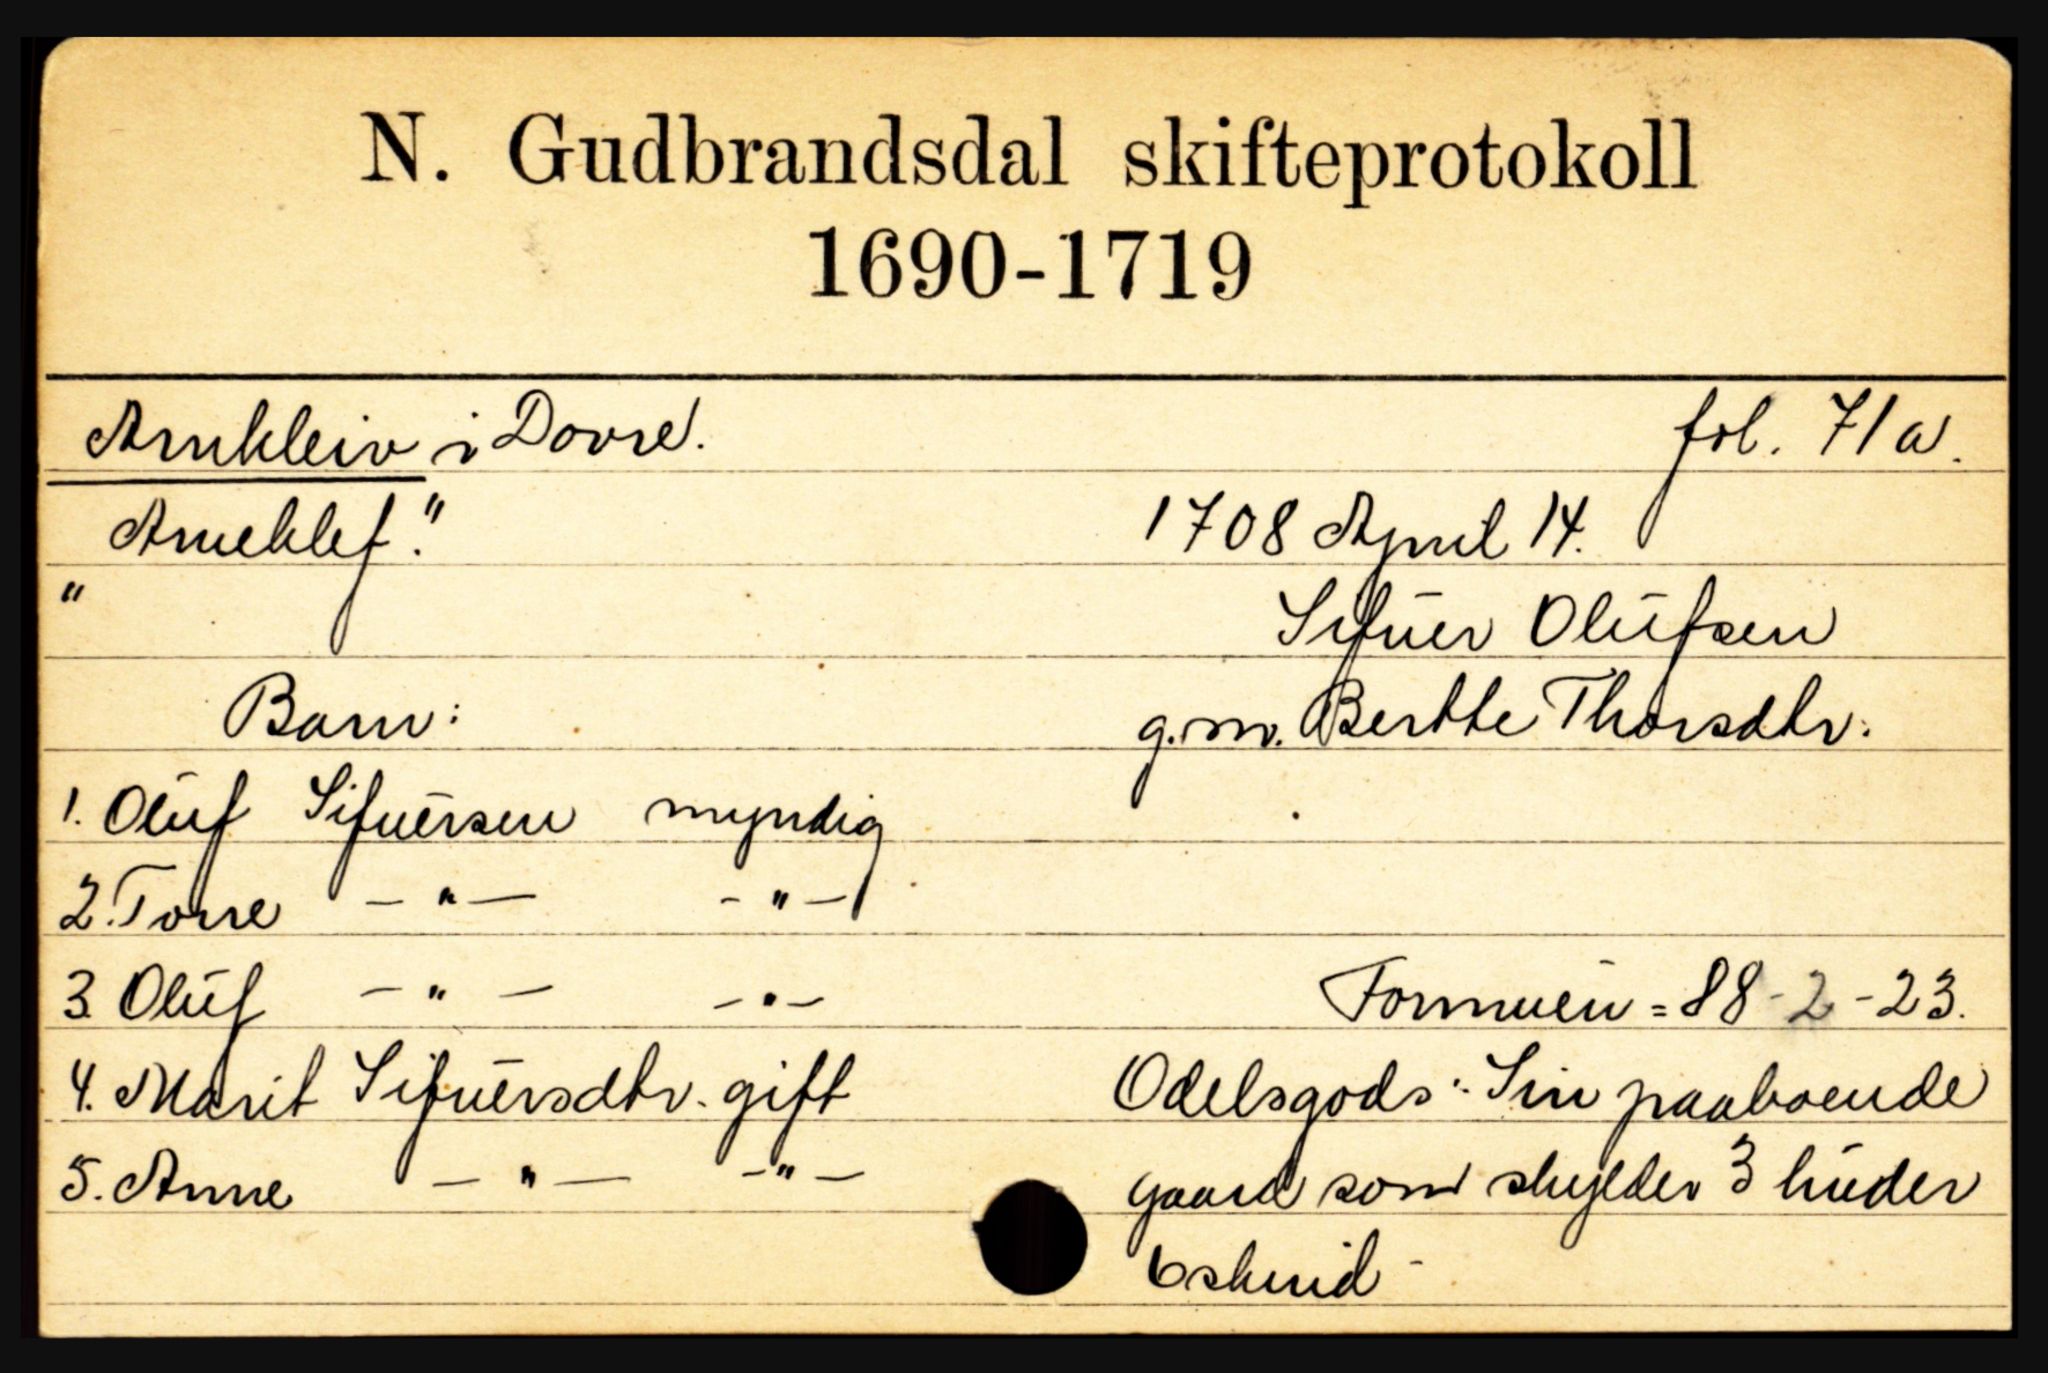 N. Gudbrandsdal skifteprotokoll
1690-1719
Arnkleiv i Dovre. fol. 71a.
Arneklef." 1708 April 14.
" Sifuer Olufsen
Barn: g.m. Berthe Thorsdtr.
1. Oluf Sifuersen myndig
2. Torre -"- -"-
3. Oluf -"- -"- Formuen = 88-2-23.
4. Marit Sifuersdtr. gift Odelsgods: Sin paaboende
5. Anne -"- -"- gaard som skylder 3 huder
6 skind -